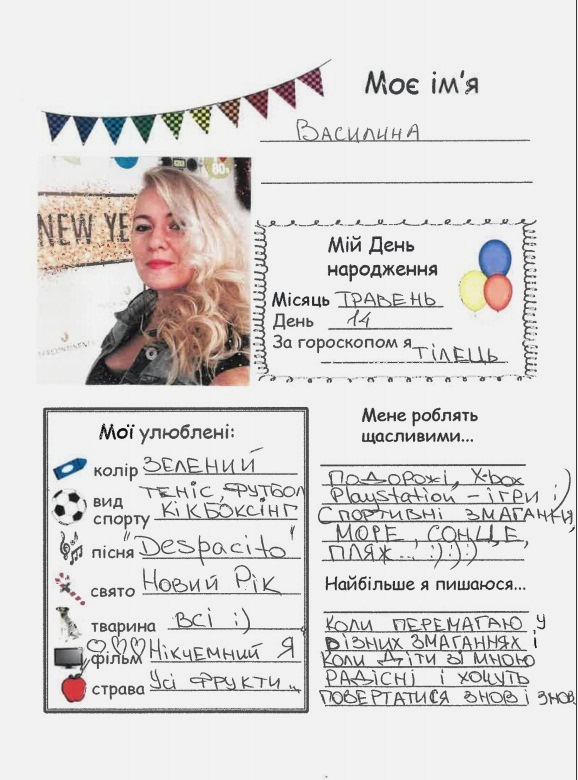 Моє ім'я
ВАСИЛИНА
80s
NEW YE
Мій День
народження
Місяць ТРАВЕНЬ
День 14
За гороскопом я
ТІЛЕЦЬ
Мої улюблені:
колір ЗЕЛЕНИЙ
вид
спорту ТЕНІС, ФУТБОЛ
КІКБОКСІНГ
пісня "Despacito"
свято Новий Рік
тварина всі :)
фільм Нікчемний Я
страва Усі ФРУКТИ..
Мене роблять
щасливими...
ПОДОРОЖІ, X-box :)
Playstation – ІГРИ :)
СПОРТИВНІ ЗМАГАННЯ,
МОРЕ, СОНЦЕ,
ПЛЯЖ... :) :) :)
Найбільше я пишаюся...
КОЛИ ПЕРЕМАГАЮ У
РІЗНИХ ЗМАГАННЯХ і
КОЛИ ДІТИ ЗІ МНОЮ
РАДІСНІ І ХОЧУТЬ
ПОВЕРТАТИСЯ ЗНОВ І ЗНОВ